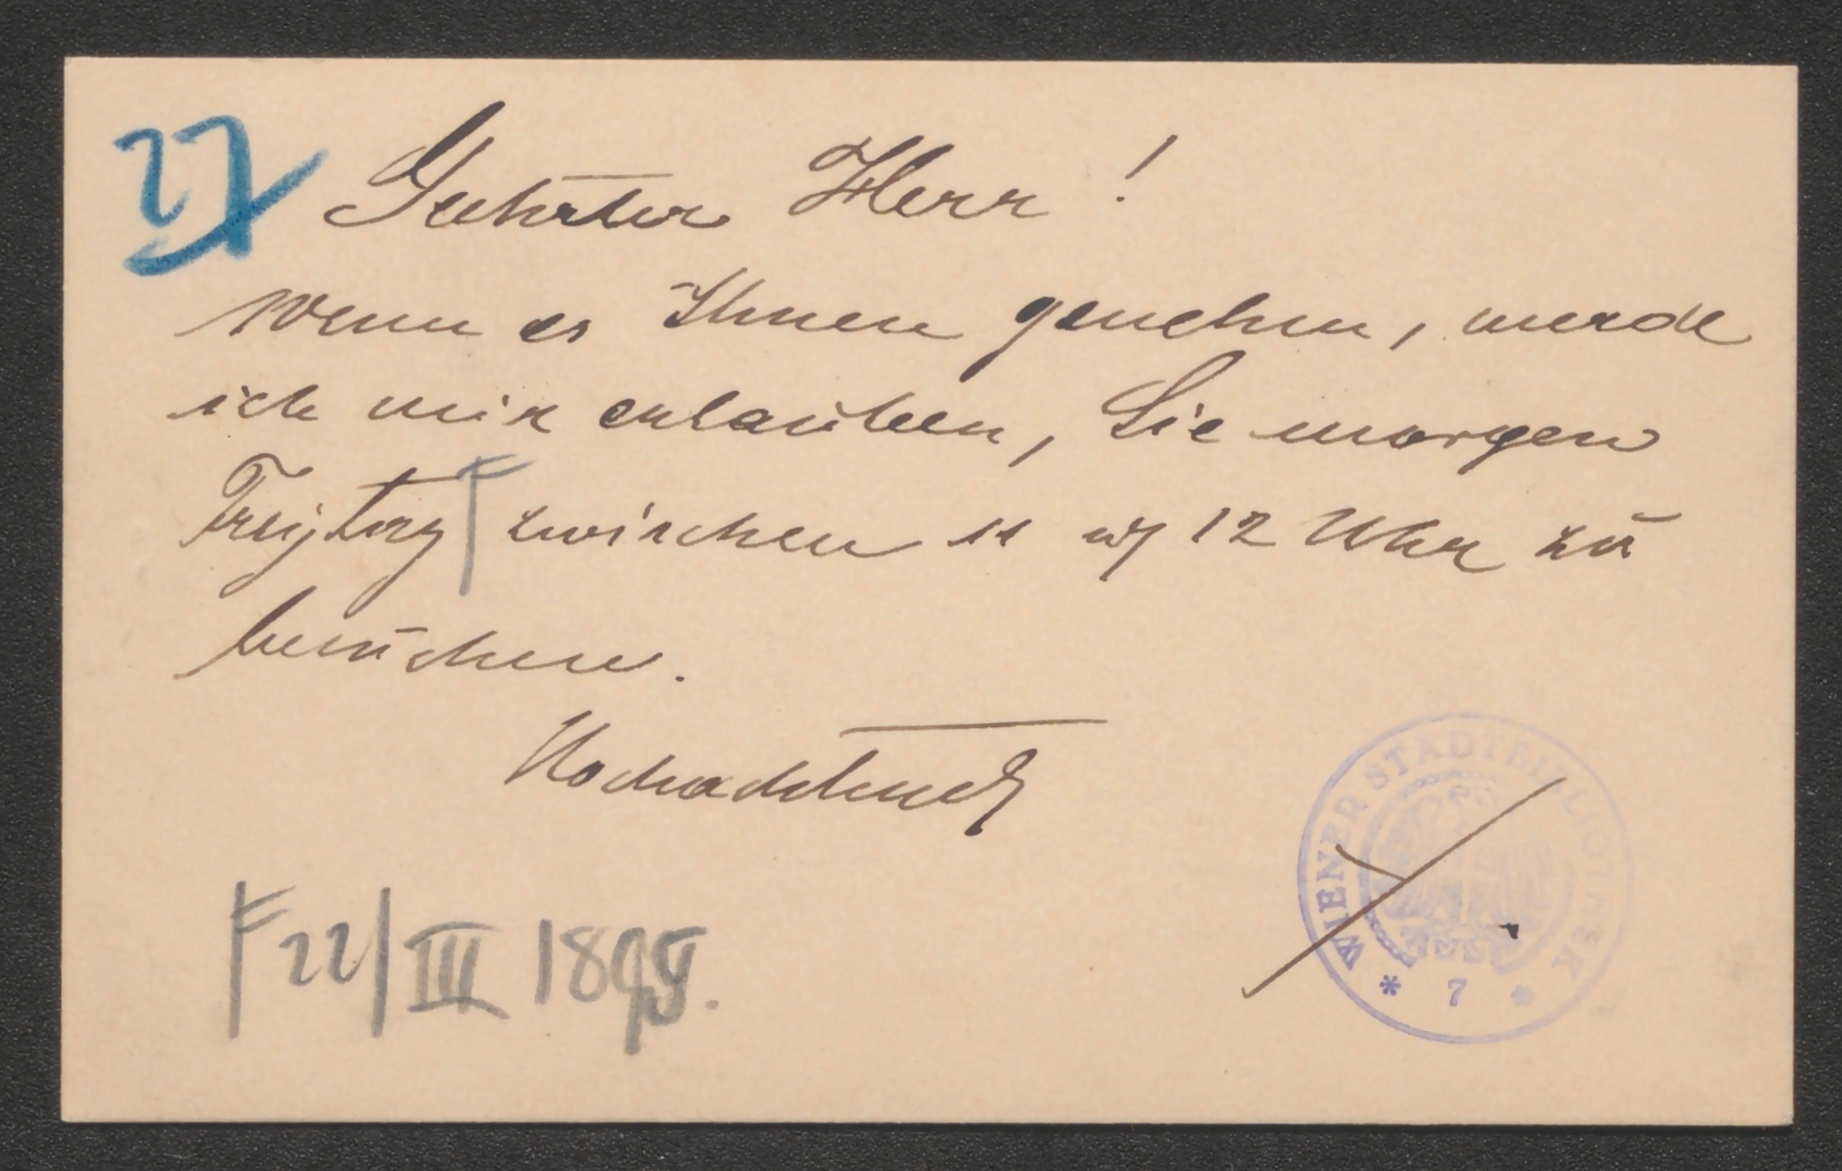 27
Geehrter Herr !
wenn es Ihnen genehm, werde
ich mir erlauben, Sie morgen
Freytag F zwischen 11 u 12 Uhr zu
besuchen.
Hochachtend
F 22/III 1895.
WIENER STADTBIBLIOTHEK
* 7 *